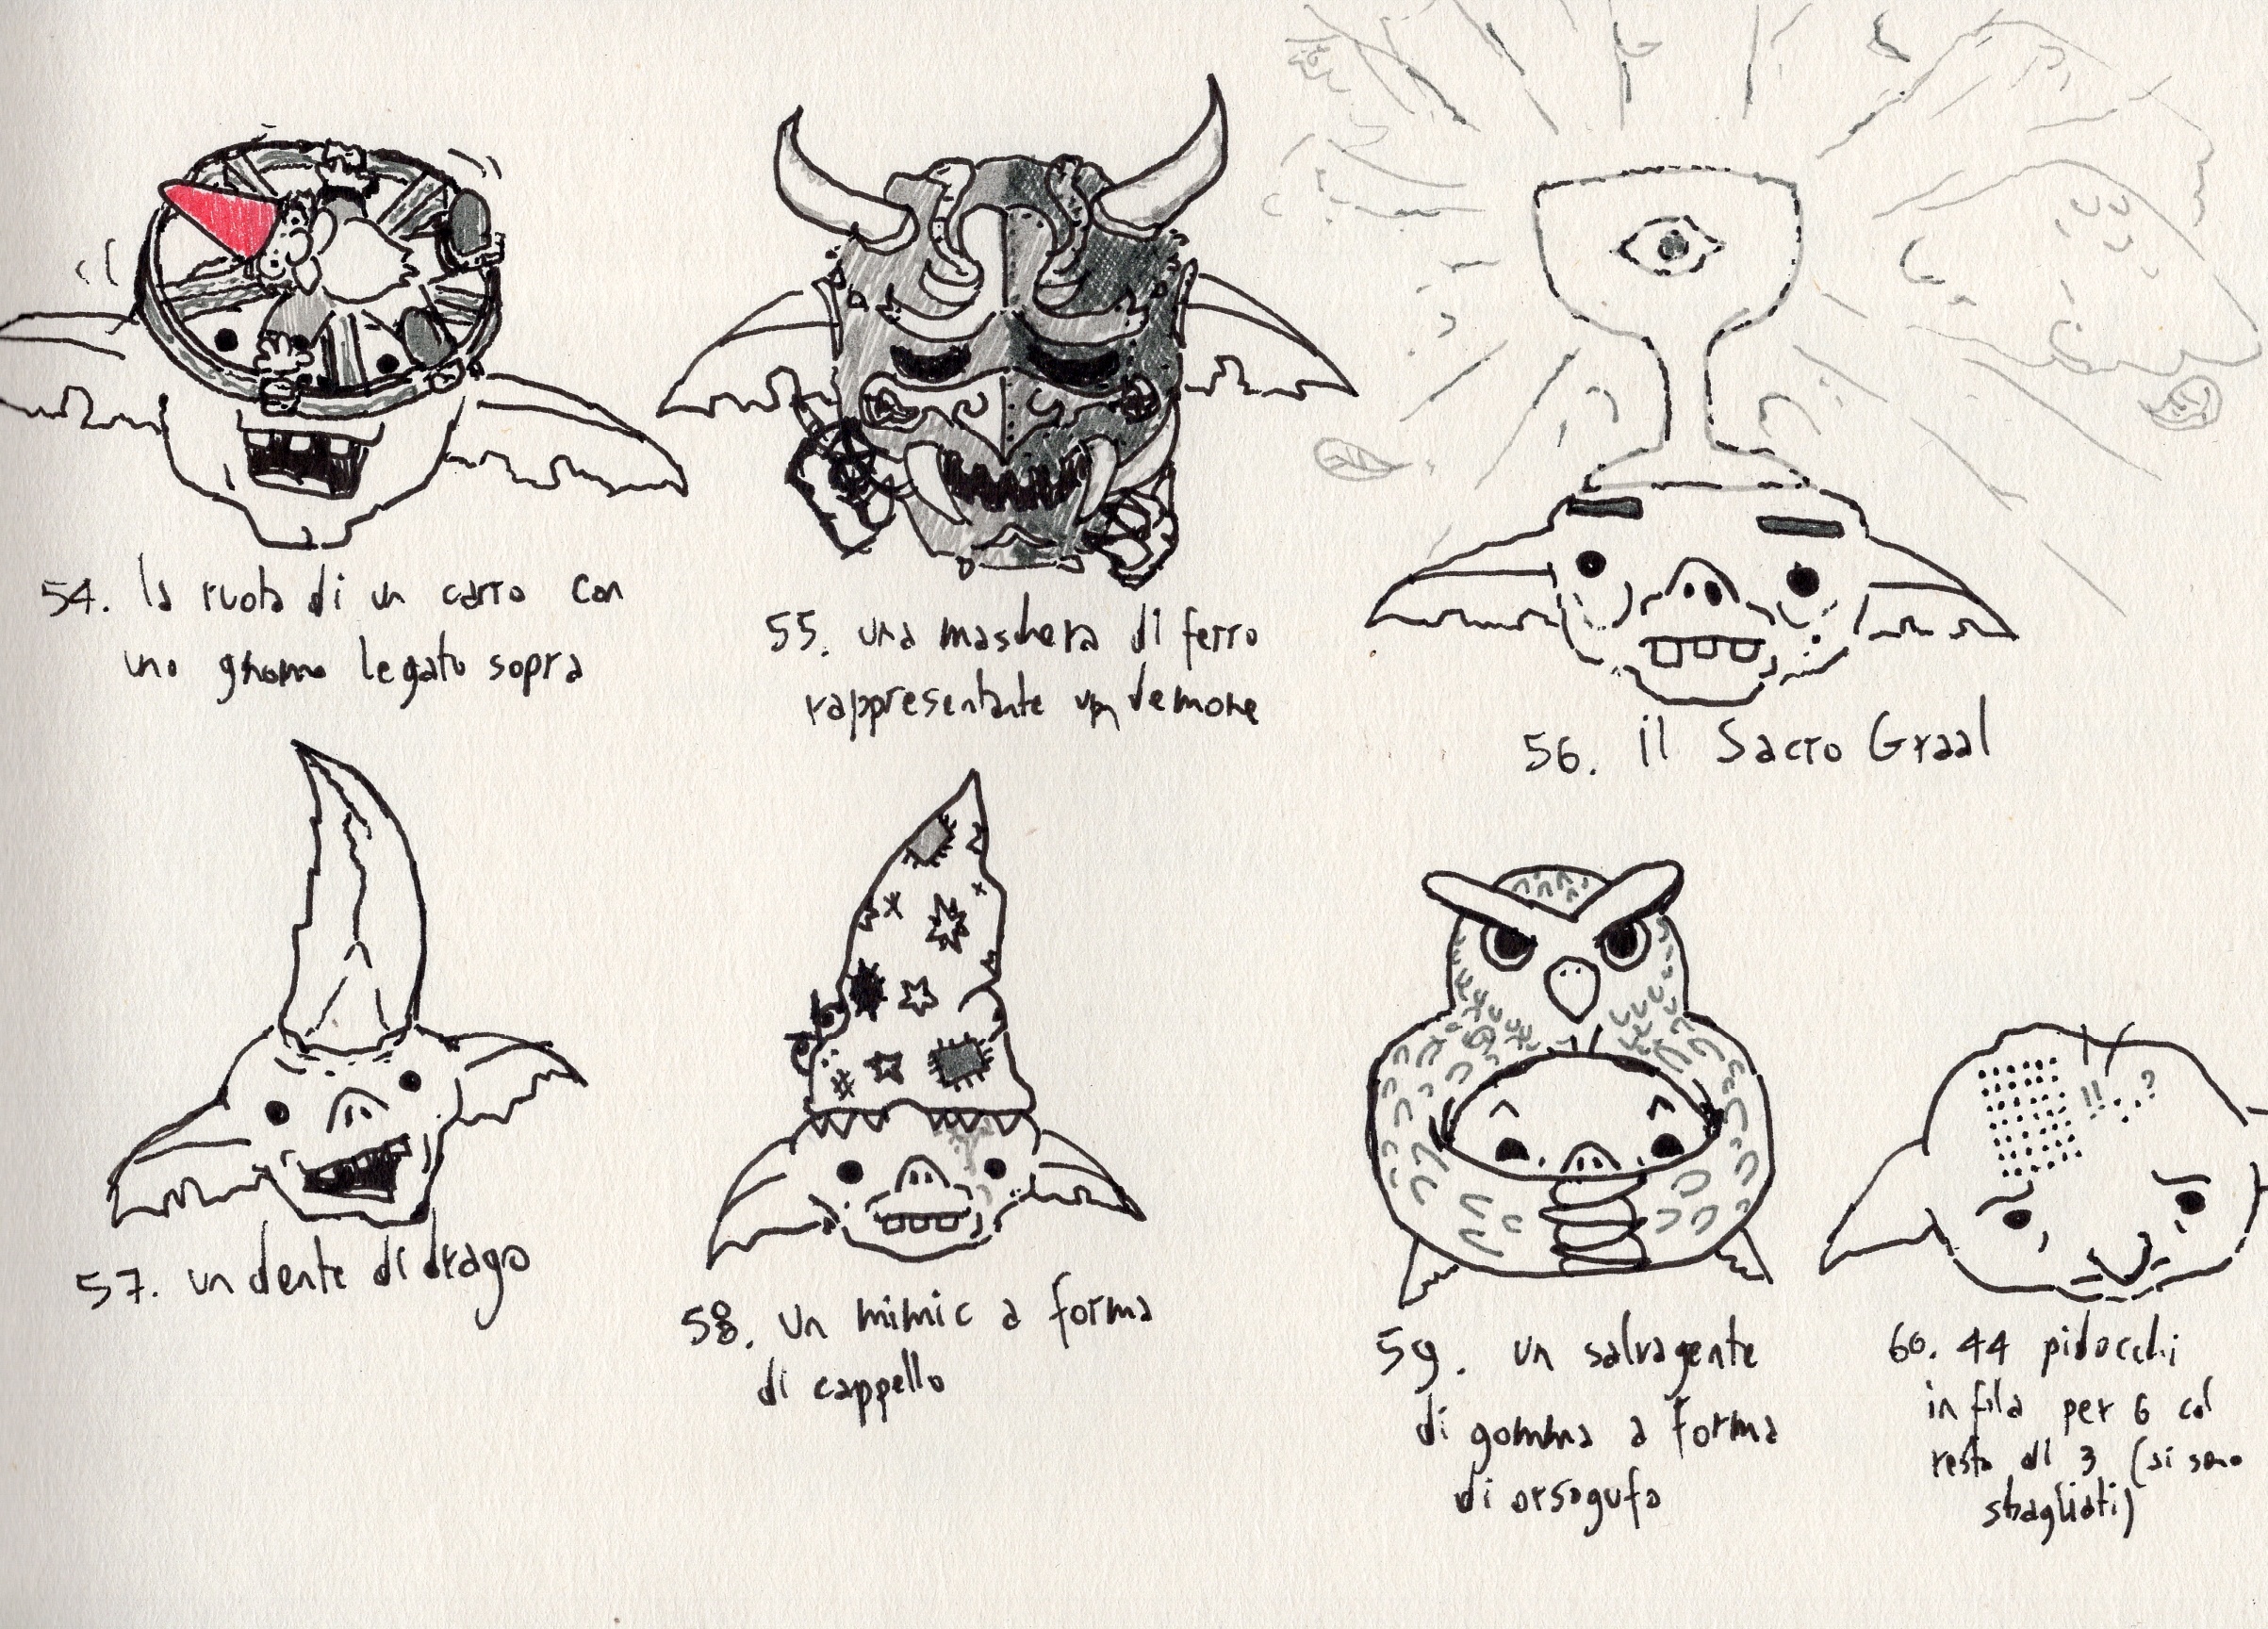 54. la ruota di un carro con
uno gnomo legato sopra
55. una maschera di ferro
rappresentante un demone
56. il Sacro Graal
57. un dente di drago
58. un mimic a forma
di cappello
59. un salvagente
di gomma a forma
di orsogufo
60. 44 pidocchi
in fila per 6 col
resto di 3 (si sono
sbagliati)
!! ?